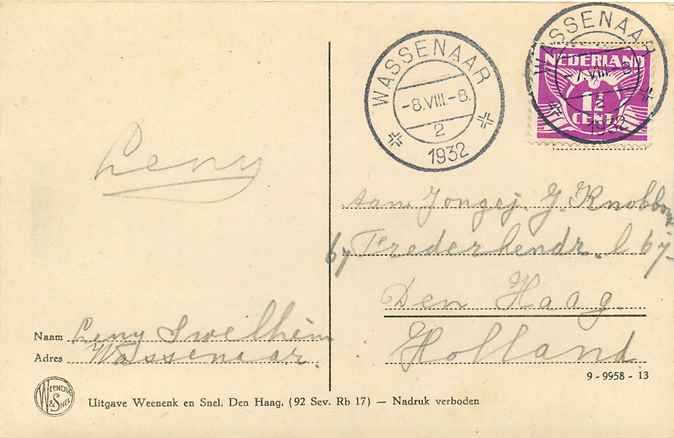 WASSENAAR
-8.VIII.-8.
2
1932
WASSENAAR
NEDERLAND
1½
CENT
1932
Leny
aan Jongej. J. Knobben
67 Frederhendr. l 67-
Den Haag.
Holland
Naam Leny Swelhèim
Adres Wassenaar.
9 - 9958 - 13
WEENENK & SNEL
Uitgave Weenenk en Snel. Den Haag. (92 Sev. Rb 17) — Nadruk verboden